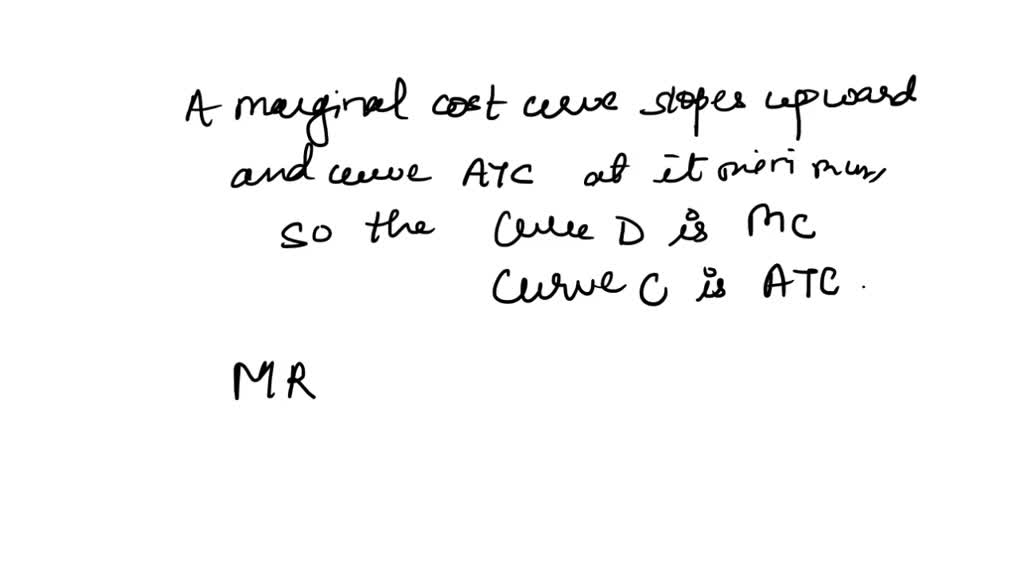 A marginal cost curve slopes upward
and curve ATC at it minimum,
so the Curve D is MC
Curve C is ATC.
MR